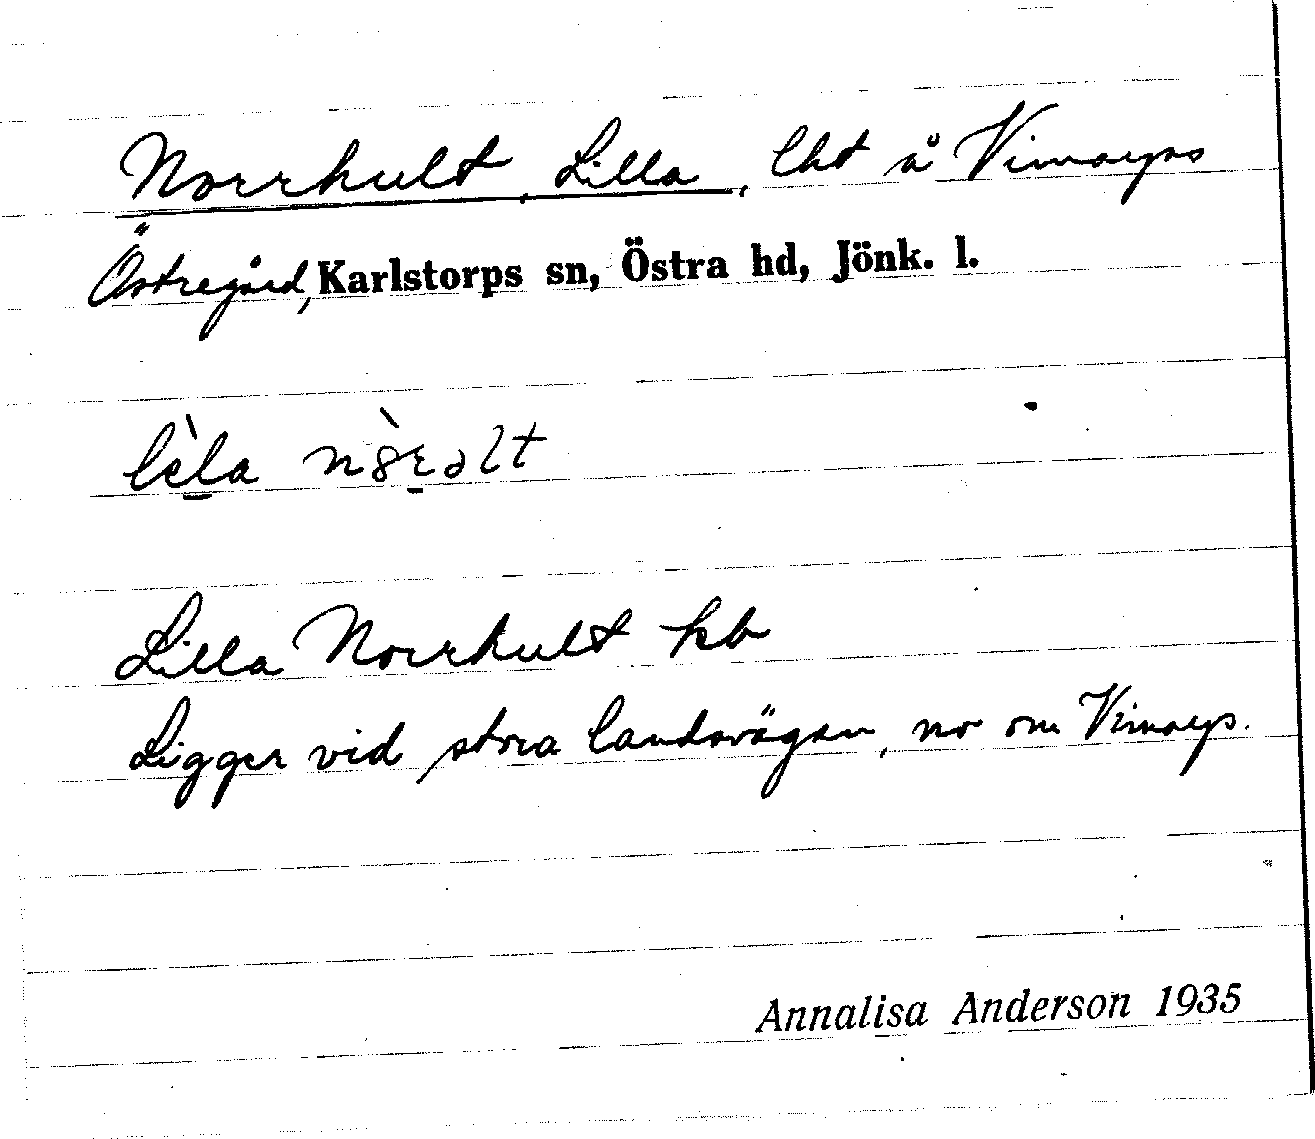 Norrhult, Lilla, lht å Vimarps
Östregård, Karlstorps sn, Östra hd, Jönk. l.
Lilla Norrhult kb
Ligger vid stora landsvägen, no om Vimarp.
Annalisa Anderson 1935